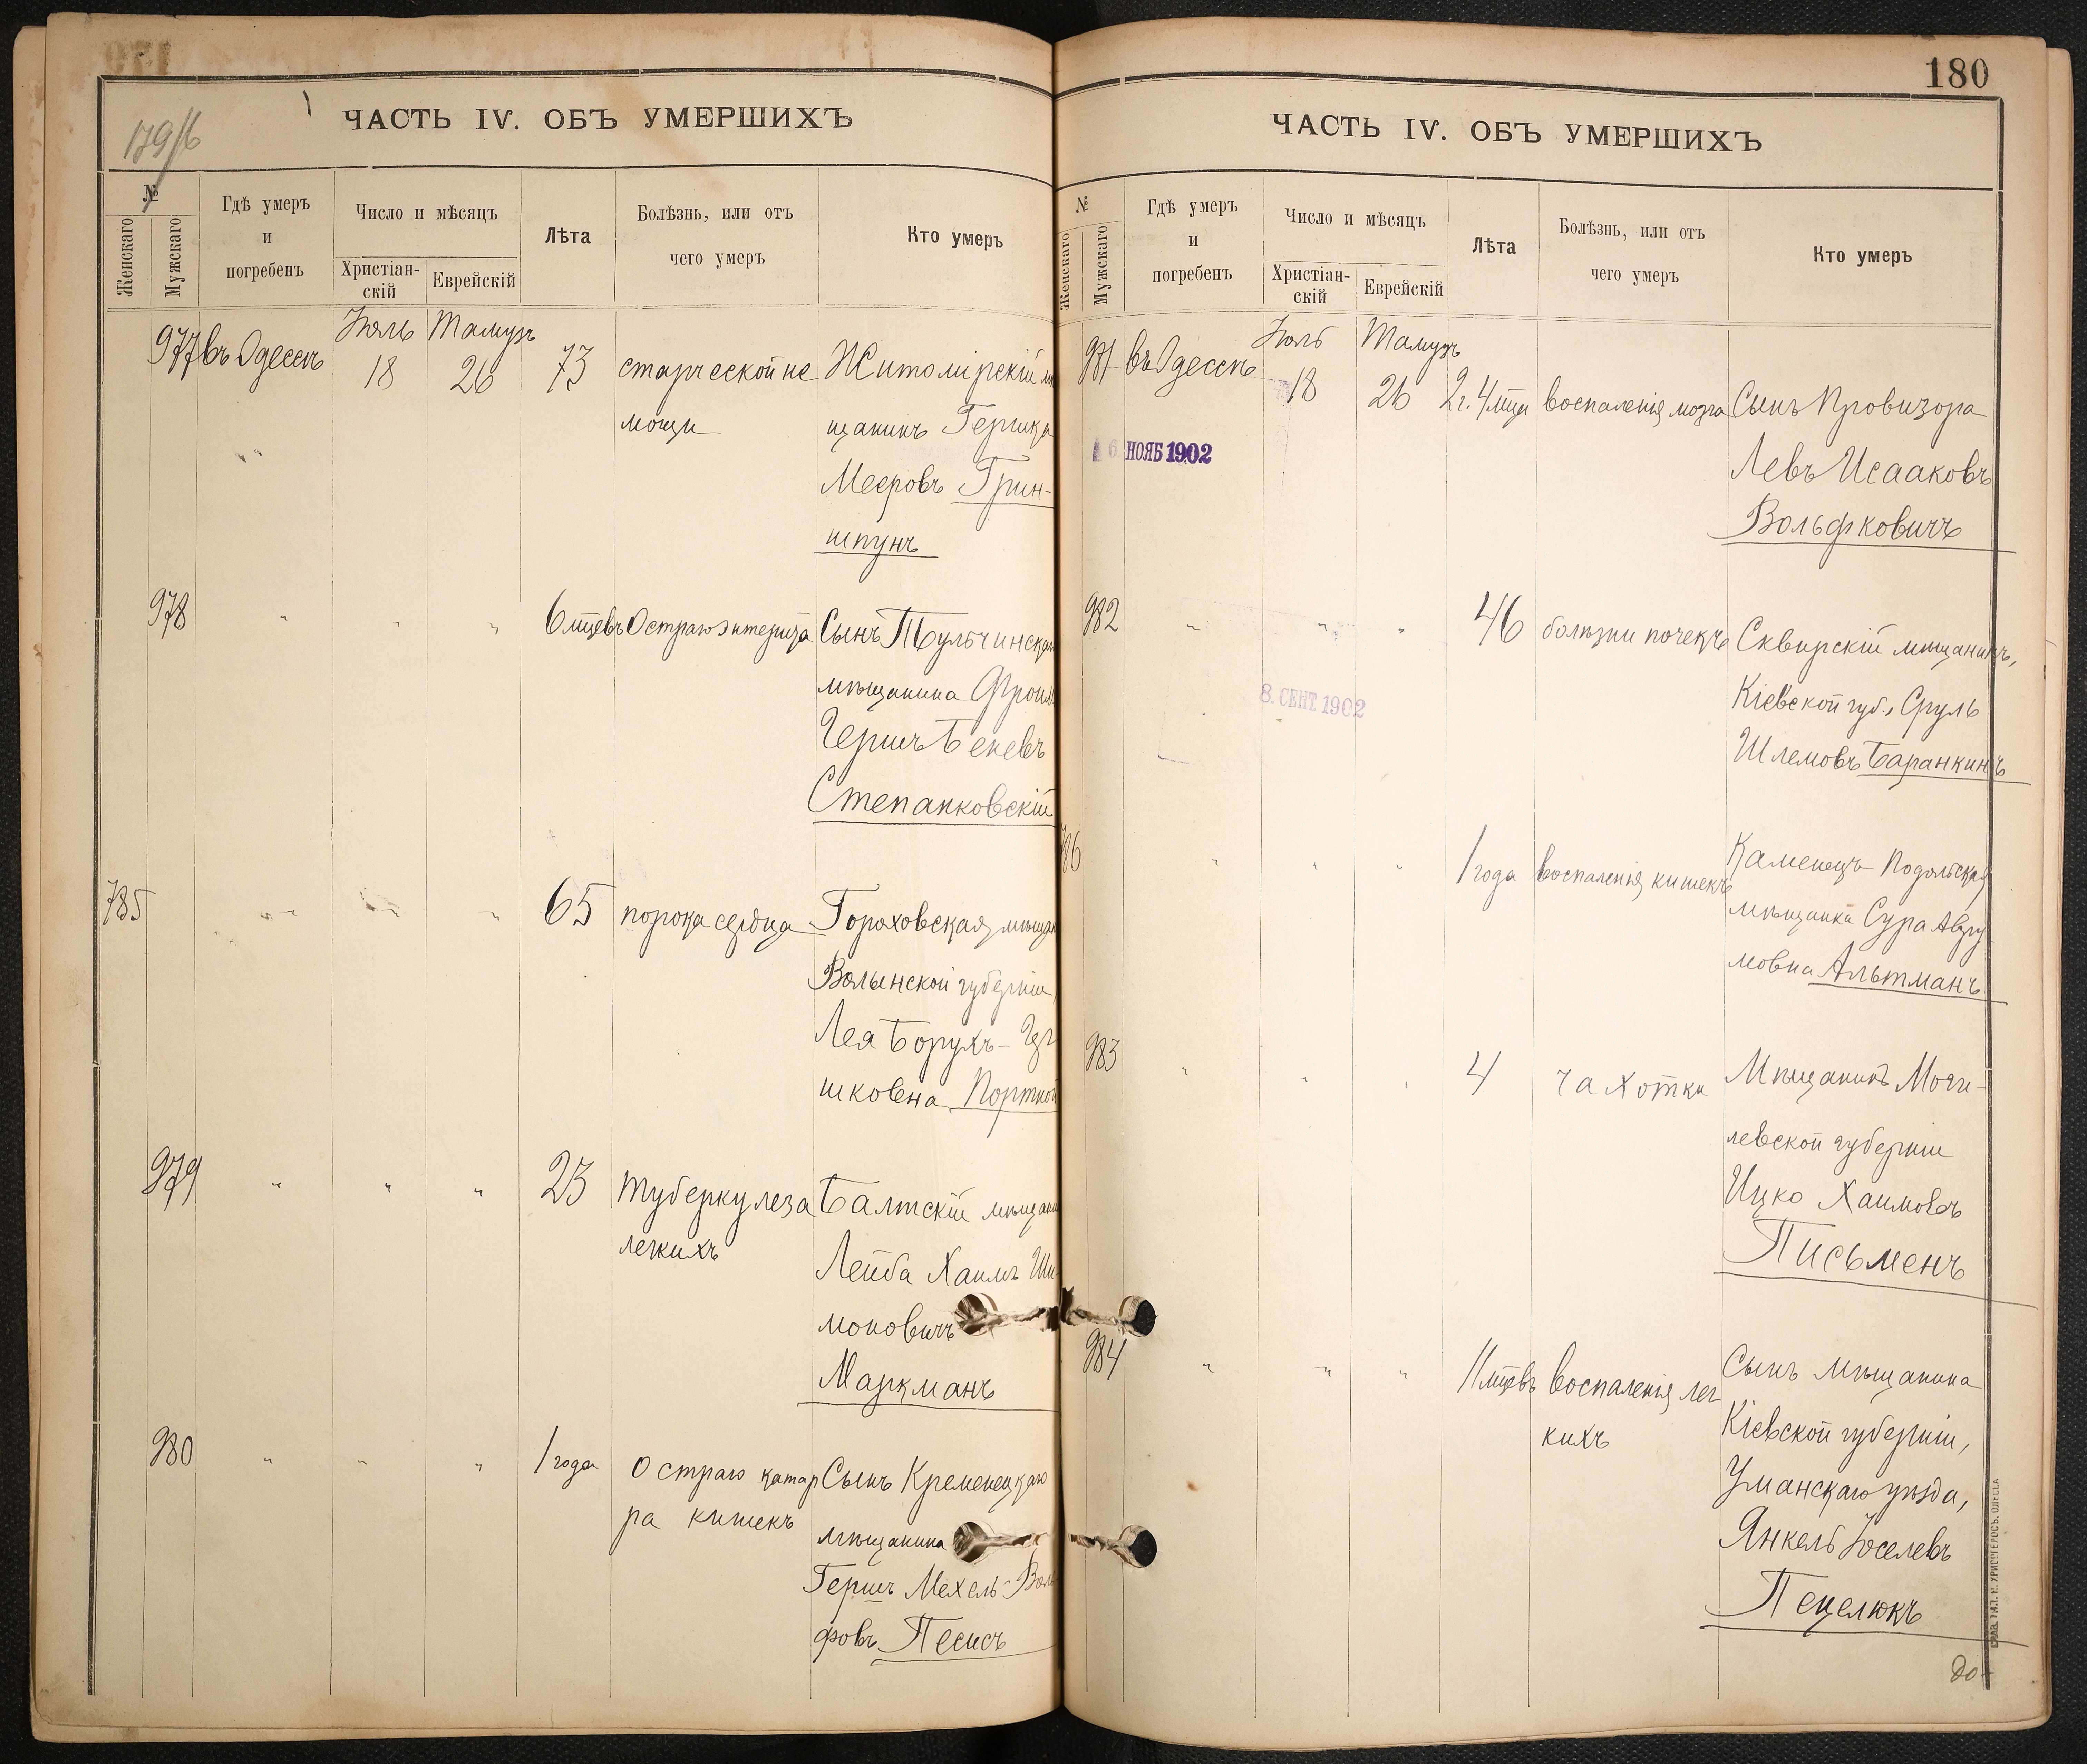 179/б
ЧАСТЬ IV. ОБЪ УМЕРШИХЪ
№
Женскаго
Мужскаго
Гдѣ умеръ
и
погребенъ
Число и мѣсяцъ
Христіан-
скій
Еврейскій
Лѣта
Болѣзнь, или отъ
чего умеръ
Кто умеръ
Іюль Тамузъ
977 въ Одессѣ 18 26 73 старческой не Житомірскій
мощи щанинъ Гершко
Мееровъ Грин-
шпунъ
978 " " " 6 мцевъ Остраго энтерита Сынъ Тульчинскаго
мѣщанина Фроим
Гершъ Беневъ
Степанковскій
785 " " " 65 порока сердца Гороховская мѣщан
Волынской губерніи,
Лея Борухъ-
шковна Портной
979 " " " 23 туберкулеза Балтскій мѣщанин
легкихъ
Лейба Хаимъ Ши-
моновичъ
Маркманъ
980 " " " 1 года Остраго катар Сынъ Кременецкаго
ра кишекъ мѣщанина
Гершъ Мехель-Воль
фовъ Песисъ
180
ЧАСТЬ IV. ОБЪ УМЕРШИХЪ
№
Женскаго
Мужскаго
Гдѣ умеръ
и
погребенъ
Число и мѣсяцъ
Христіан-
скій
Еврейскій
Лѣта
Болѣзнь, или отъ
чего умеръ
Кто умеръ
Іюль Тамузъ
981 въ Одессѣ 18 26 2 г. 4 мца воспаленія мозга Сынъ Провизора
6 НОЯБ 1902
Левъ Исааковъ
Вольфковичъ
982 " " " 46 болѣзни почекъ Сквирскій мѣщанинъ,
8. СЕНТ 1902
Кіевской губ., Сруль
Шлемовъ Баранкинъ
786 " " " 1 года воспаленія кишекъ Каменецъ-Подольская
мѣщанка Сура Авру
мовна Альтманъ
983 " " " 4 чахотки Мѣщанинъ Моги-
левской губерніи
Ицко Хаимовъ
Письменъ
984 " " " 11 мцевъ воспаленія лег Сынъ мѣщанина
кихъ Кіевской губерніи,
Уманскаго уѣзда,
Янкель Іоселевъ
Пецелюкъ